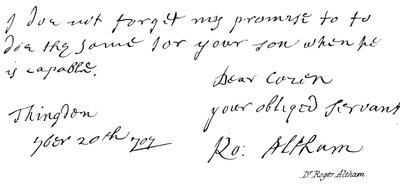 I doe not forget my promise to to
doe the same for your son when he
is capable.
Dear Cozen
Thingdon
your obliged servant
7ber 20th 707
Ro: Altham
Dr Roger Altham